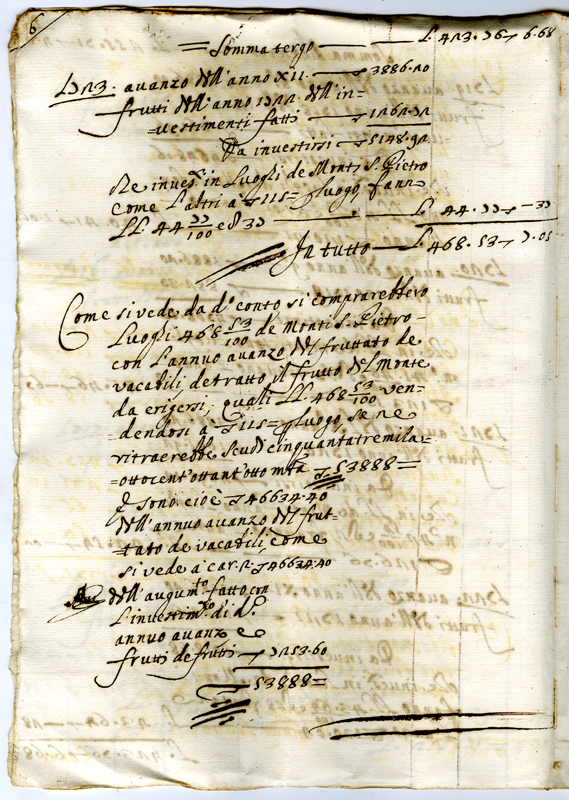 6
= Somma tergo — L. 423.76 ▽ 6.68
1723. avanzo dell'anno XII. — ▽ 3886.20
frutti dell'anno 1722. dell'in=
=vestimenti fatti — ▽ 1262.72
Da investirsi — ▽ 5148.92
Re inves.ti in Luoghi de Monti S. Pietro
come l'altri a ▽ 115= p luogo, fanno
LL. 44 77/100 e ▽ 37 — L. 44.77 ▽ — 37
In tutto — L. 468.53 ▽ 7.05
Come si vede da d.o conto si comprarebbero
Luoghi 468 53/100 de Monti S. Pietro
con l'annuo avanzo del fruttato de
vacabili, detratto il frutto del Monte
da erigersi, quali LL. 468 53/100 ven=
dendosi a ▽ 115= p luogo, se ne
ritraerebbe scudi cinquantatremila=
=ottocent'ottant'otto m.ta ▽ 53888=
E sono cioè ▽ 46634.40
dell'annuo avanzo del frut=
=tato de vacabili, come
si vede a car. 2. ▽ 46634.40
dell'augum.to fatto con
l'investim.to di d.o
annuo avanzo e
frutti de frutti — ▽ 7253.60
▽ 53888=